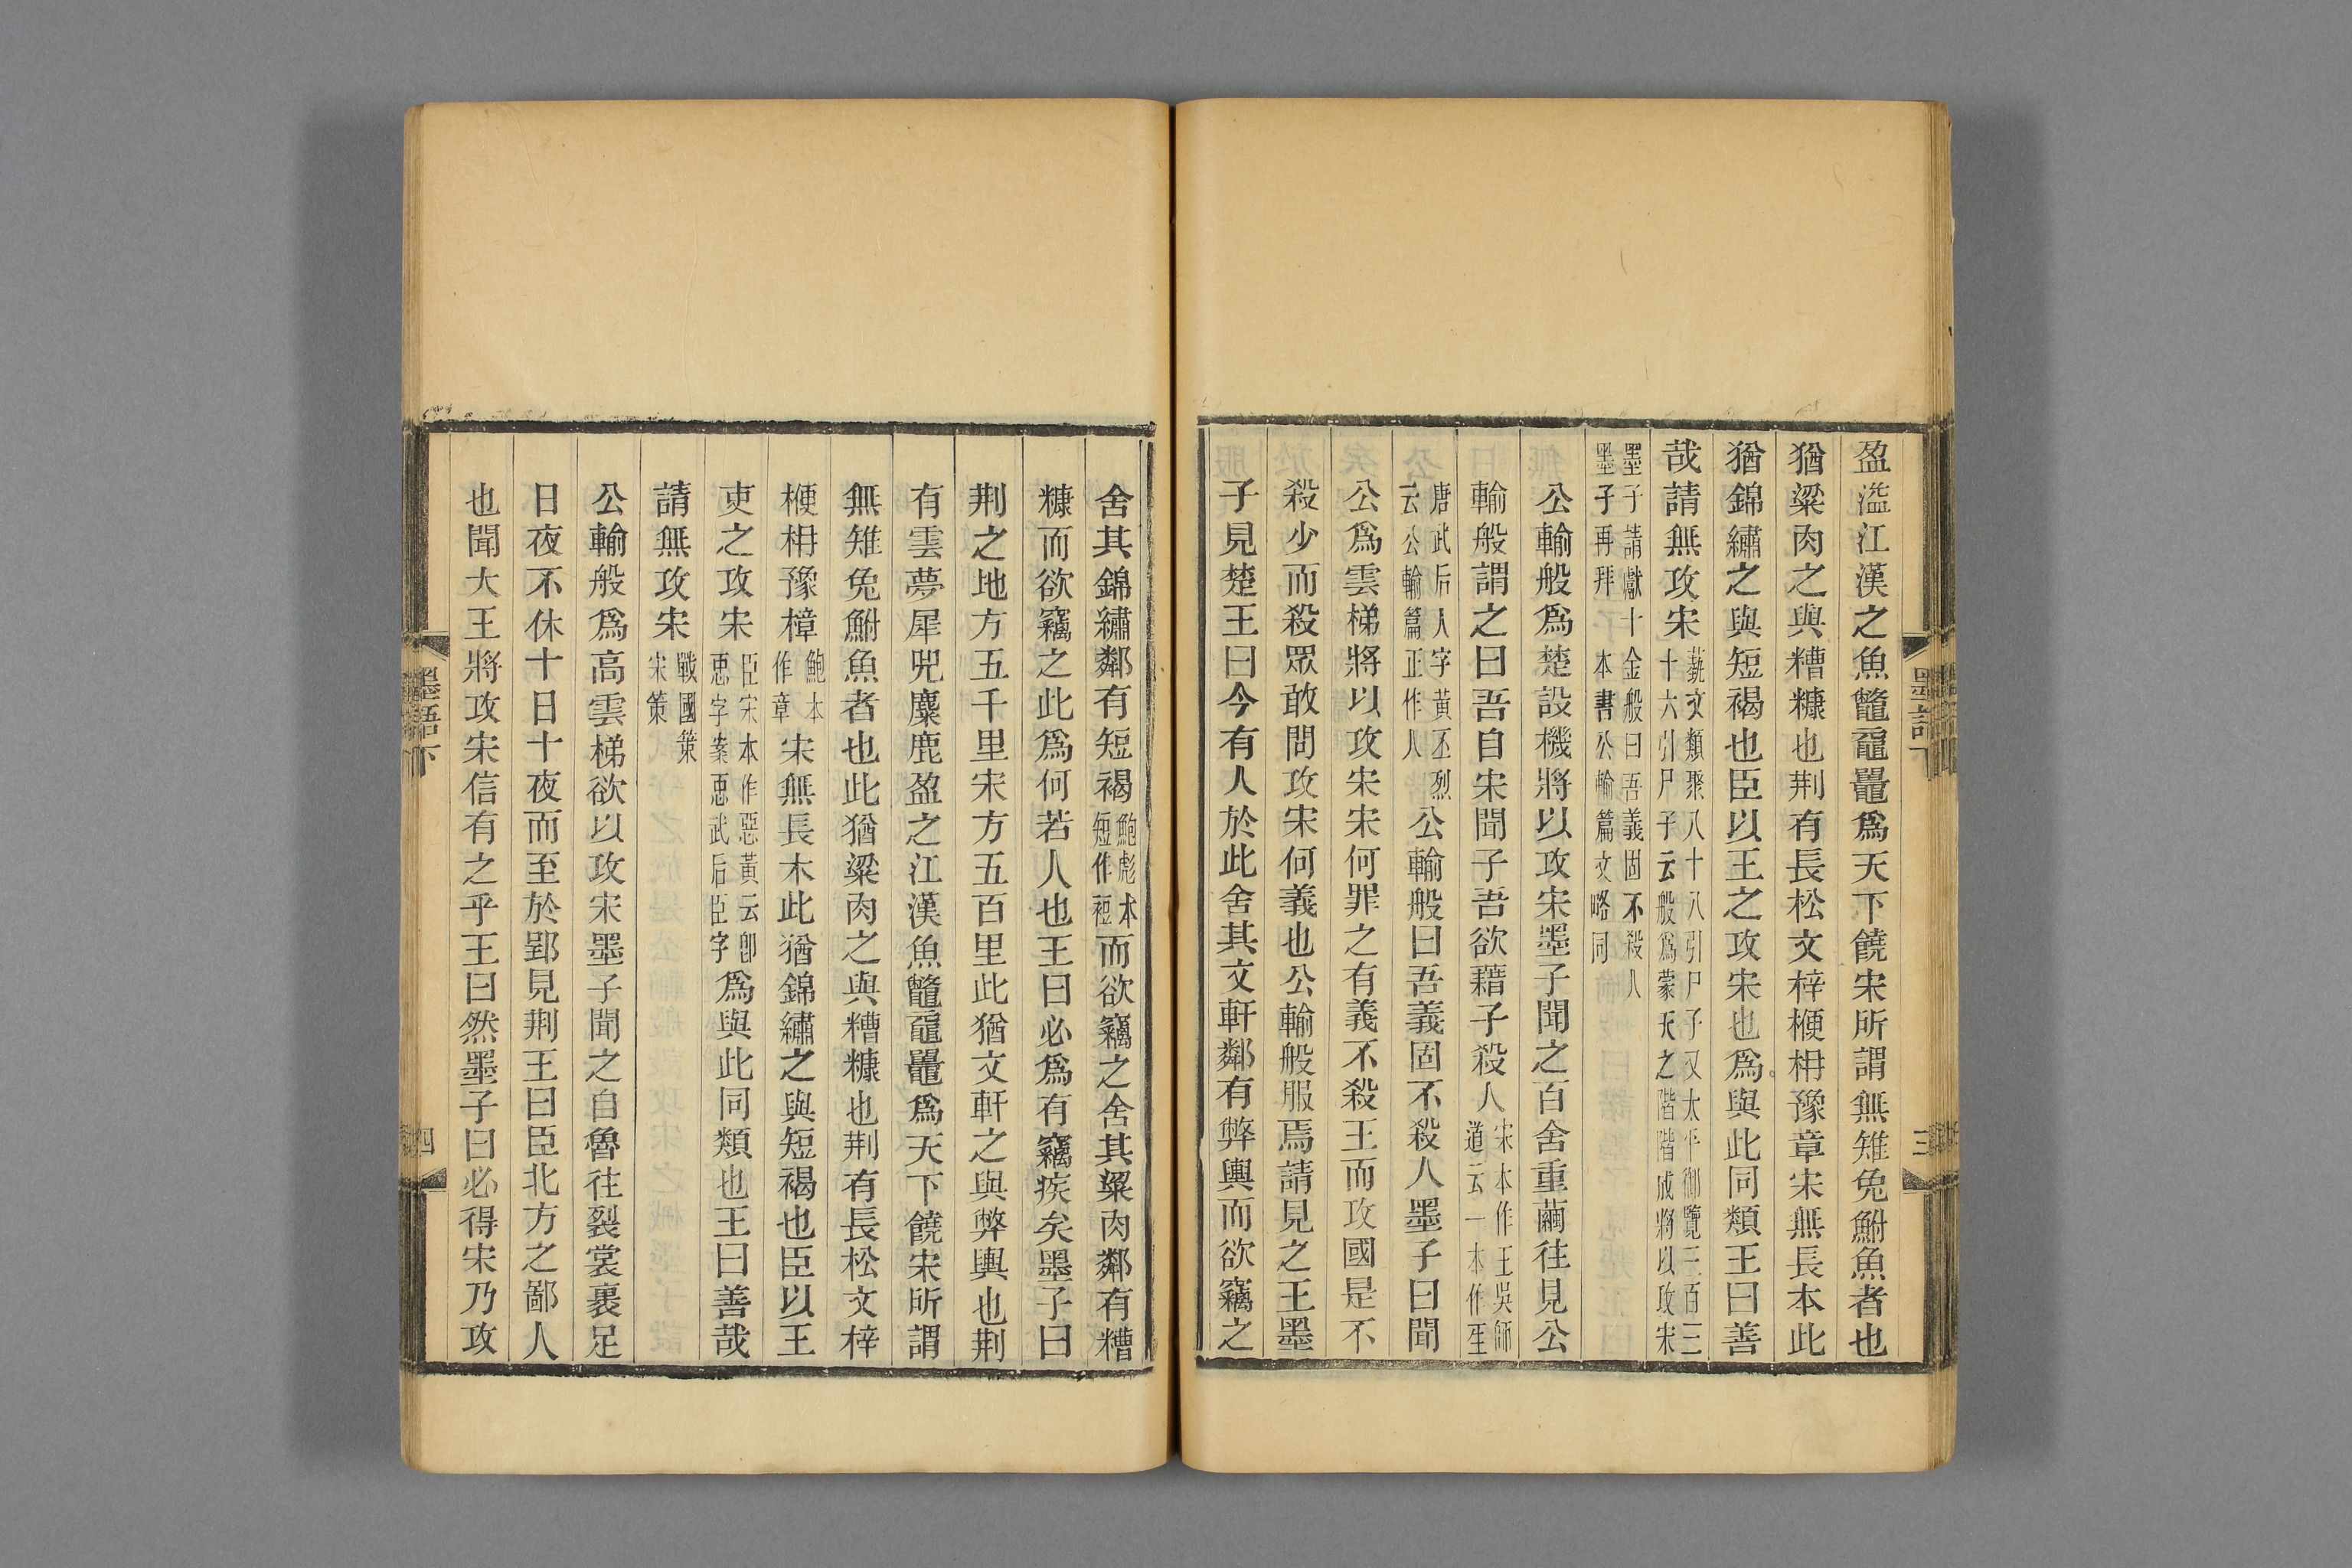 盈溢江漢之魚鼈黿鼉爲天下饒宋所謂無雉兔鮒魚者也
猶粱肉之與糟糠也荆有長松文梓楩枏豫章宋無長本此
猶錦繡之與短褐也臣以王之攻宋也爲與此同類王曰善
哉請無攻宋藝文類聚八十八引尸子又太平御覽三百三十六引尸子云般爲蒙天之階階成將以攻宋
墨子請獻十金般曰吾義固不殺人墨子再拜本書公輸篇文略同
公輸般爲楚設機將以攻宋墨子聞之百舍重繭往見公
輸般謂之曰吾自宋聞子吾欲藉子殺人宋本作王吳師道云一本作𤯔
唐武后人字黃丕烈云公輸篇正作人公輸般曰吾義固不殺人墨子曰聞
公爲雲梯將以攻宋宋何罪之有義不殺王而攻國是不
殺少而殺眾敢問攻宋何義也公輸般服焉請見之王墨
子見楚王曰今有人於此舍其文軒鄰有弊輿而欲竊之
墨語下
三
舍其錦繡鄰有短褐鮑彪本短作裋而欲竊之舍其粱肉鄰有糟
糠而欲竊之此爲何若人也王曰必爲有竊疾矣墨子曰
荆之地方五千里宋方五百里此猶文軒之與弊輿也荆
有雲夢犀兕麋鹿盈之江漢魚鼈黿鼉爲天下饒宋所謂
無雉兔鮒魚者也此猶粱肉之與糟糠也荆有長松文梓
楩枏豫樟鮑本作章宋無長木此猶錦繡之與短褐也臣以王
吏之攻宋臣宋本作惡黃云卽恵字案恵武后臣字爲與此同類也王曰善哉
請無攻宋戰國策宋策
公輸般爲高雲梯欲以攻宋墨子聞之自魯往裂裳裹足
日夜不休十日十夜而至於郢見荆王曰臣北方之鄙人
也聞大王將攻宋信有之乎王曰然墨子曰必得宋乃攻
墨語下
四